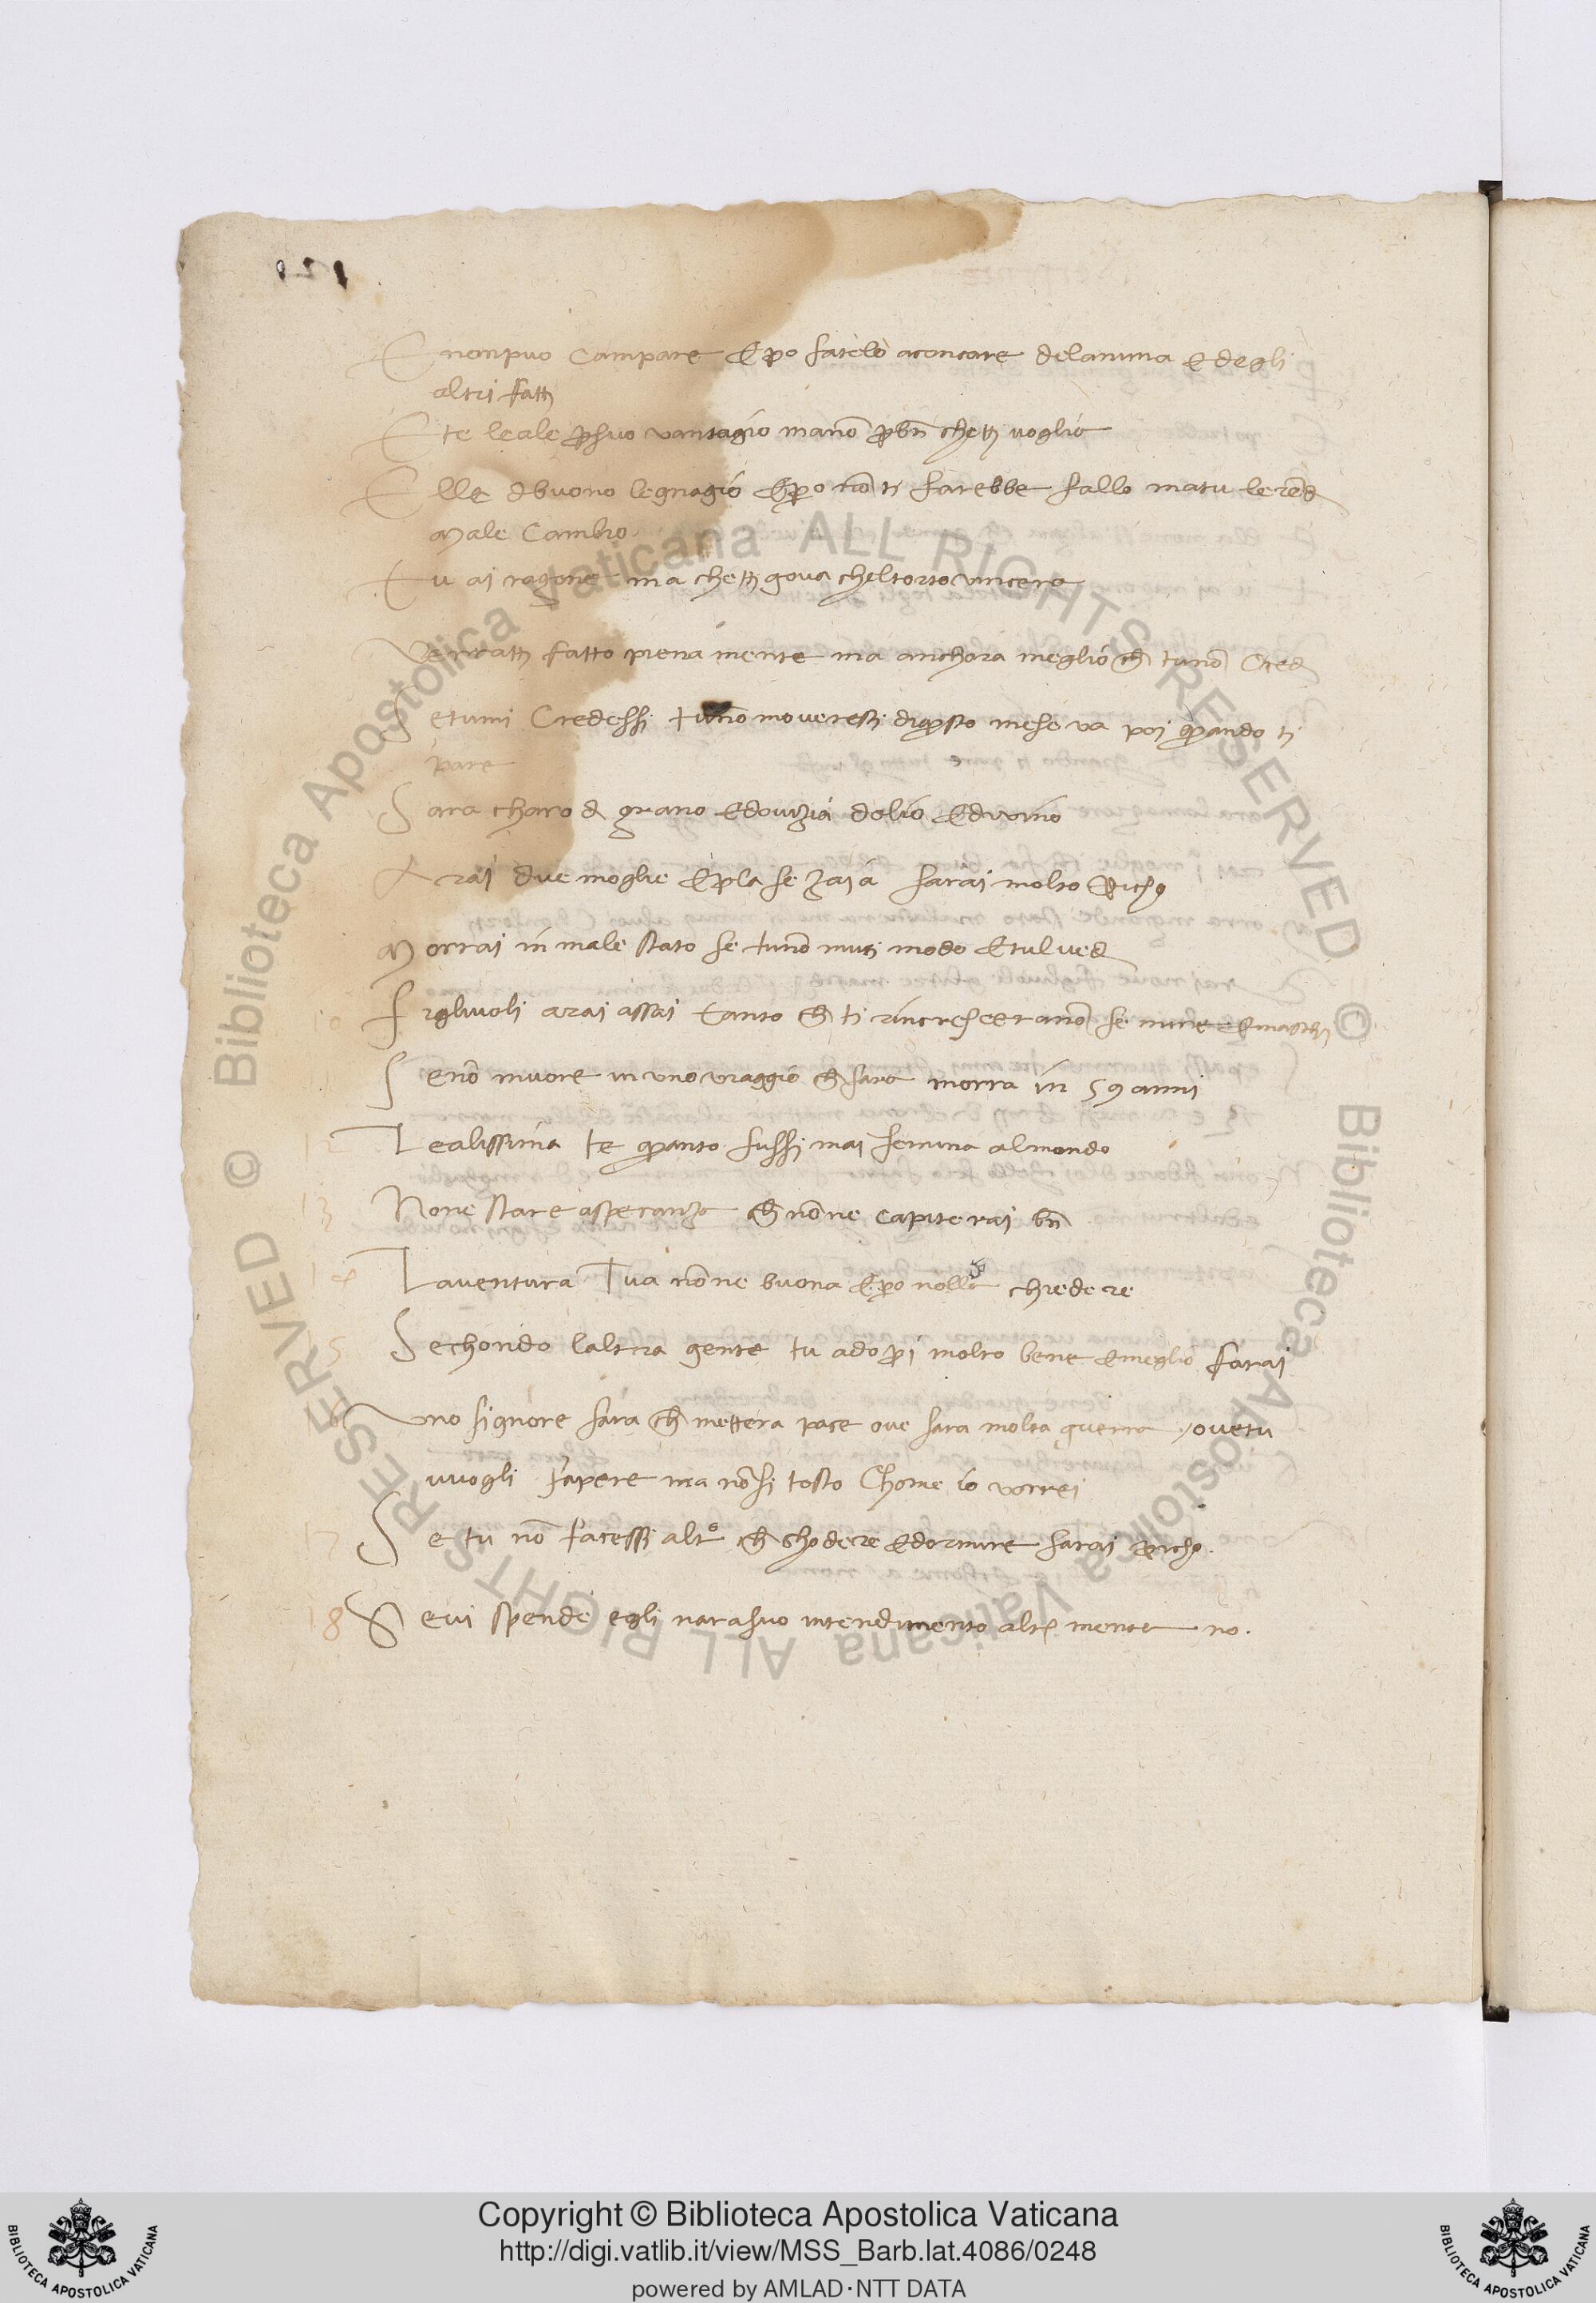 E nonpuo Campare Epo fatelo aconcare delanima E degli
altri fattj
E te leale ꝑsuo vantagio manõ ꝑbñ chettj voglio
E lle dbuono legnagio Epo nõ tj farebbe fallo matu le rẽd
Male Cambio
T u aj ragone ma chettj gova cheltorto vincera
Verrattj fatto piena mente ma anchora meglio ch tunõ Cred
S etumi Credessj tunõ moverestj diqsto mese va poj quando tj
pare
S ara charo d grano Edovizia dolio Edivino
A raj due moglie Epla sezaia saraj molto Richo
M orraj in male stato se tunõ mutj modo Etulved
10 F igliuoli araj assaj tanto ch tj rincrescerano se mine Emastj
S enõ muore in uno viaggio ch fara morra in 59 annj
12 L ealissima te quanto fussj maj femina almondo
13 N one stare asperanza ch nõne capiteraj bñ
14 L aventura Tua nõne buona Epo nollo chredere
15 S echondo laltra gente tu adoprj molto bene Emeglio faraj
16 V no signore sara ch mettera pace ove sara molta guerra / ovetu
vuogli sapere ma nõsi tosto Chome io vorrej
17 S e tu nõ facessj altro ch ghodere Edormire saraj Richo.
18 S evi spende egli narasuo intendimento altr mente no.
Copyright © Biblioteca Apostolica Vaticana
http://digi.vatlib.it/view/MSS_Barb.lat.4086/0248
powered by AMLAD·NTT DATA
BIBLIOTECA APOSTOLICA VATICANA
BIBLIOTECA APOSTOLICA VATICANA
© Biblioteca Apostolica Vaticana ALL RIGHTS RESERVED
© Biblioteca Apostolica Vaticana ALL RIGHTS RESERVED